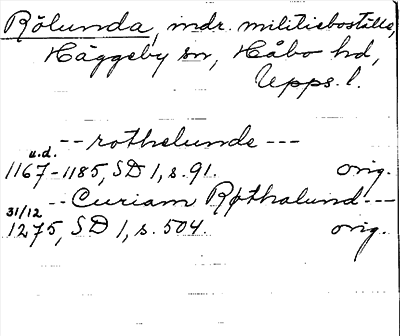 Rölunda, indr. militieboställe,
Häggeby sn, Håbo hd,
Upps. l.
-- rothelunde ---
u.d.
1167-1185, SD 1, s. 91. orig.
-- Curiam Røthalund ---
31/12
1275, SD 1, s. 504. orig.